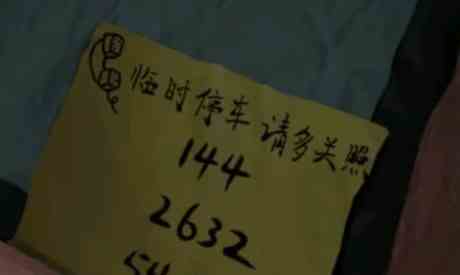 临时停车请多关照
144
2632
54